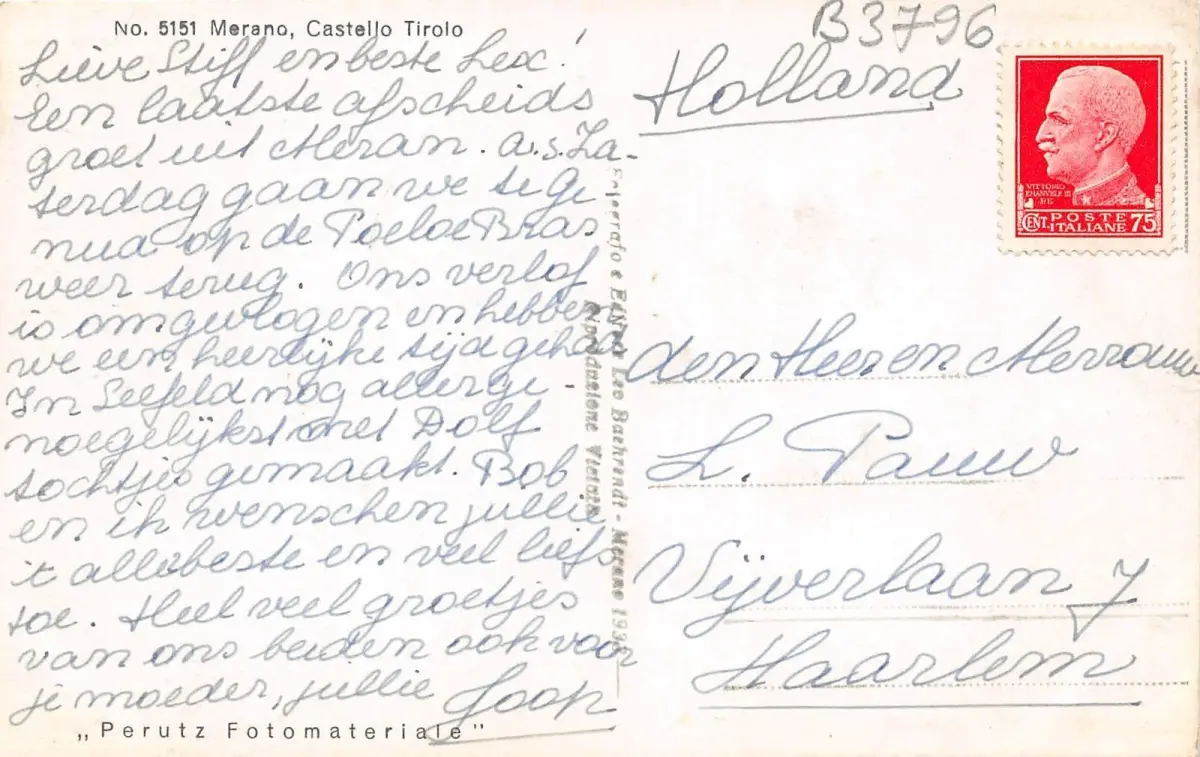 No. 5151 Merano, Castello Tirolo
B3796
Lieve Stiff en beste Lex!
Een laatste afscheids
groet uit Meran. a.s. Za-
terdag gaan we te Ge
nua op de P. de Bras
weer terug. Ons verlof
is omgevlogen en hebben
we een heerlijke tijd gehad
In Seefeld nog allerge-
noegelijkst met Dolf
tochtjes gemaakt. Bob
en ik wenschen jullie
't allerbeste en veel liefs
toe. Heel veel groetjes
van ons beiden ook voor
je moeder, jullie Joop
„Perutz Fotomateriale"
Fotografo e Editore Leo Baehrendt - Merano
Riproduzione Vietata
Holland
VITTORIO
EMANUELE III
RE
CENT. POSTE ITALIANE 75
den Heer en Mevrouw
L. Pauw
Vijverlaan 7
Haarlem